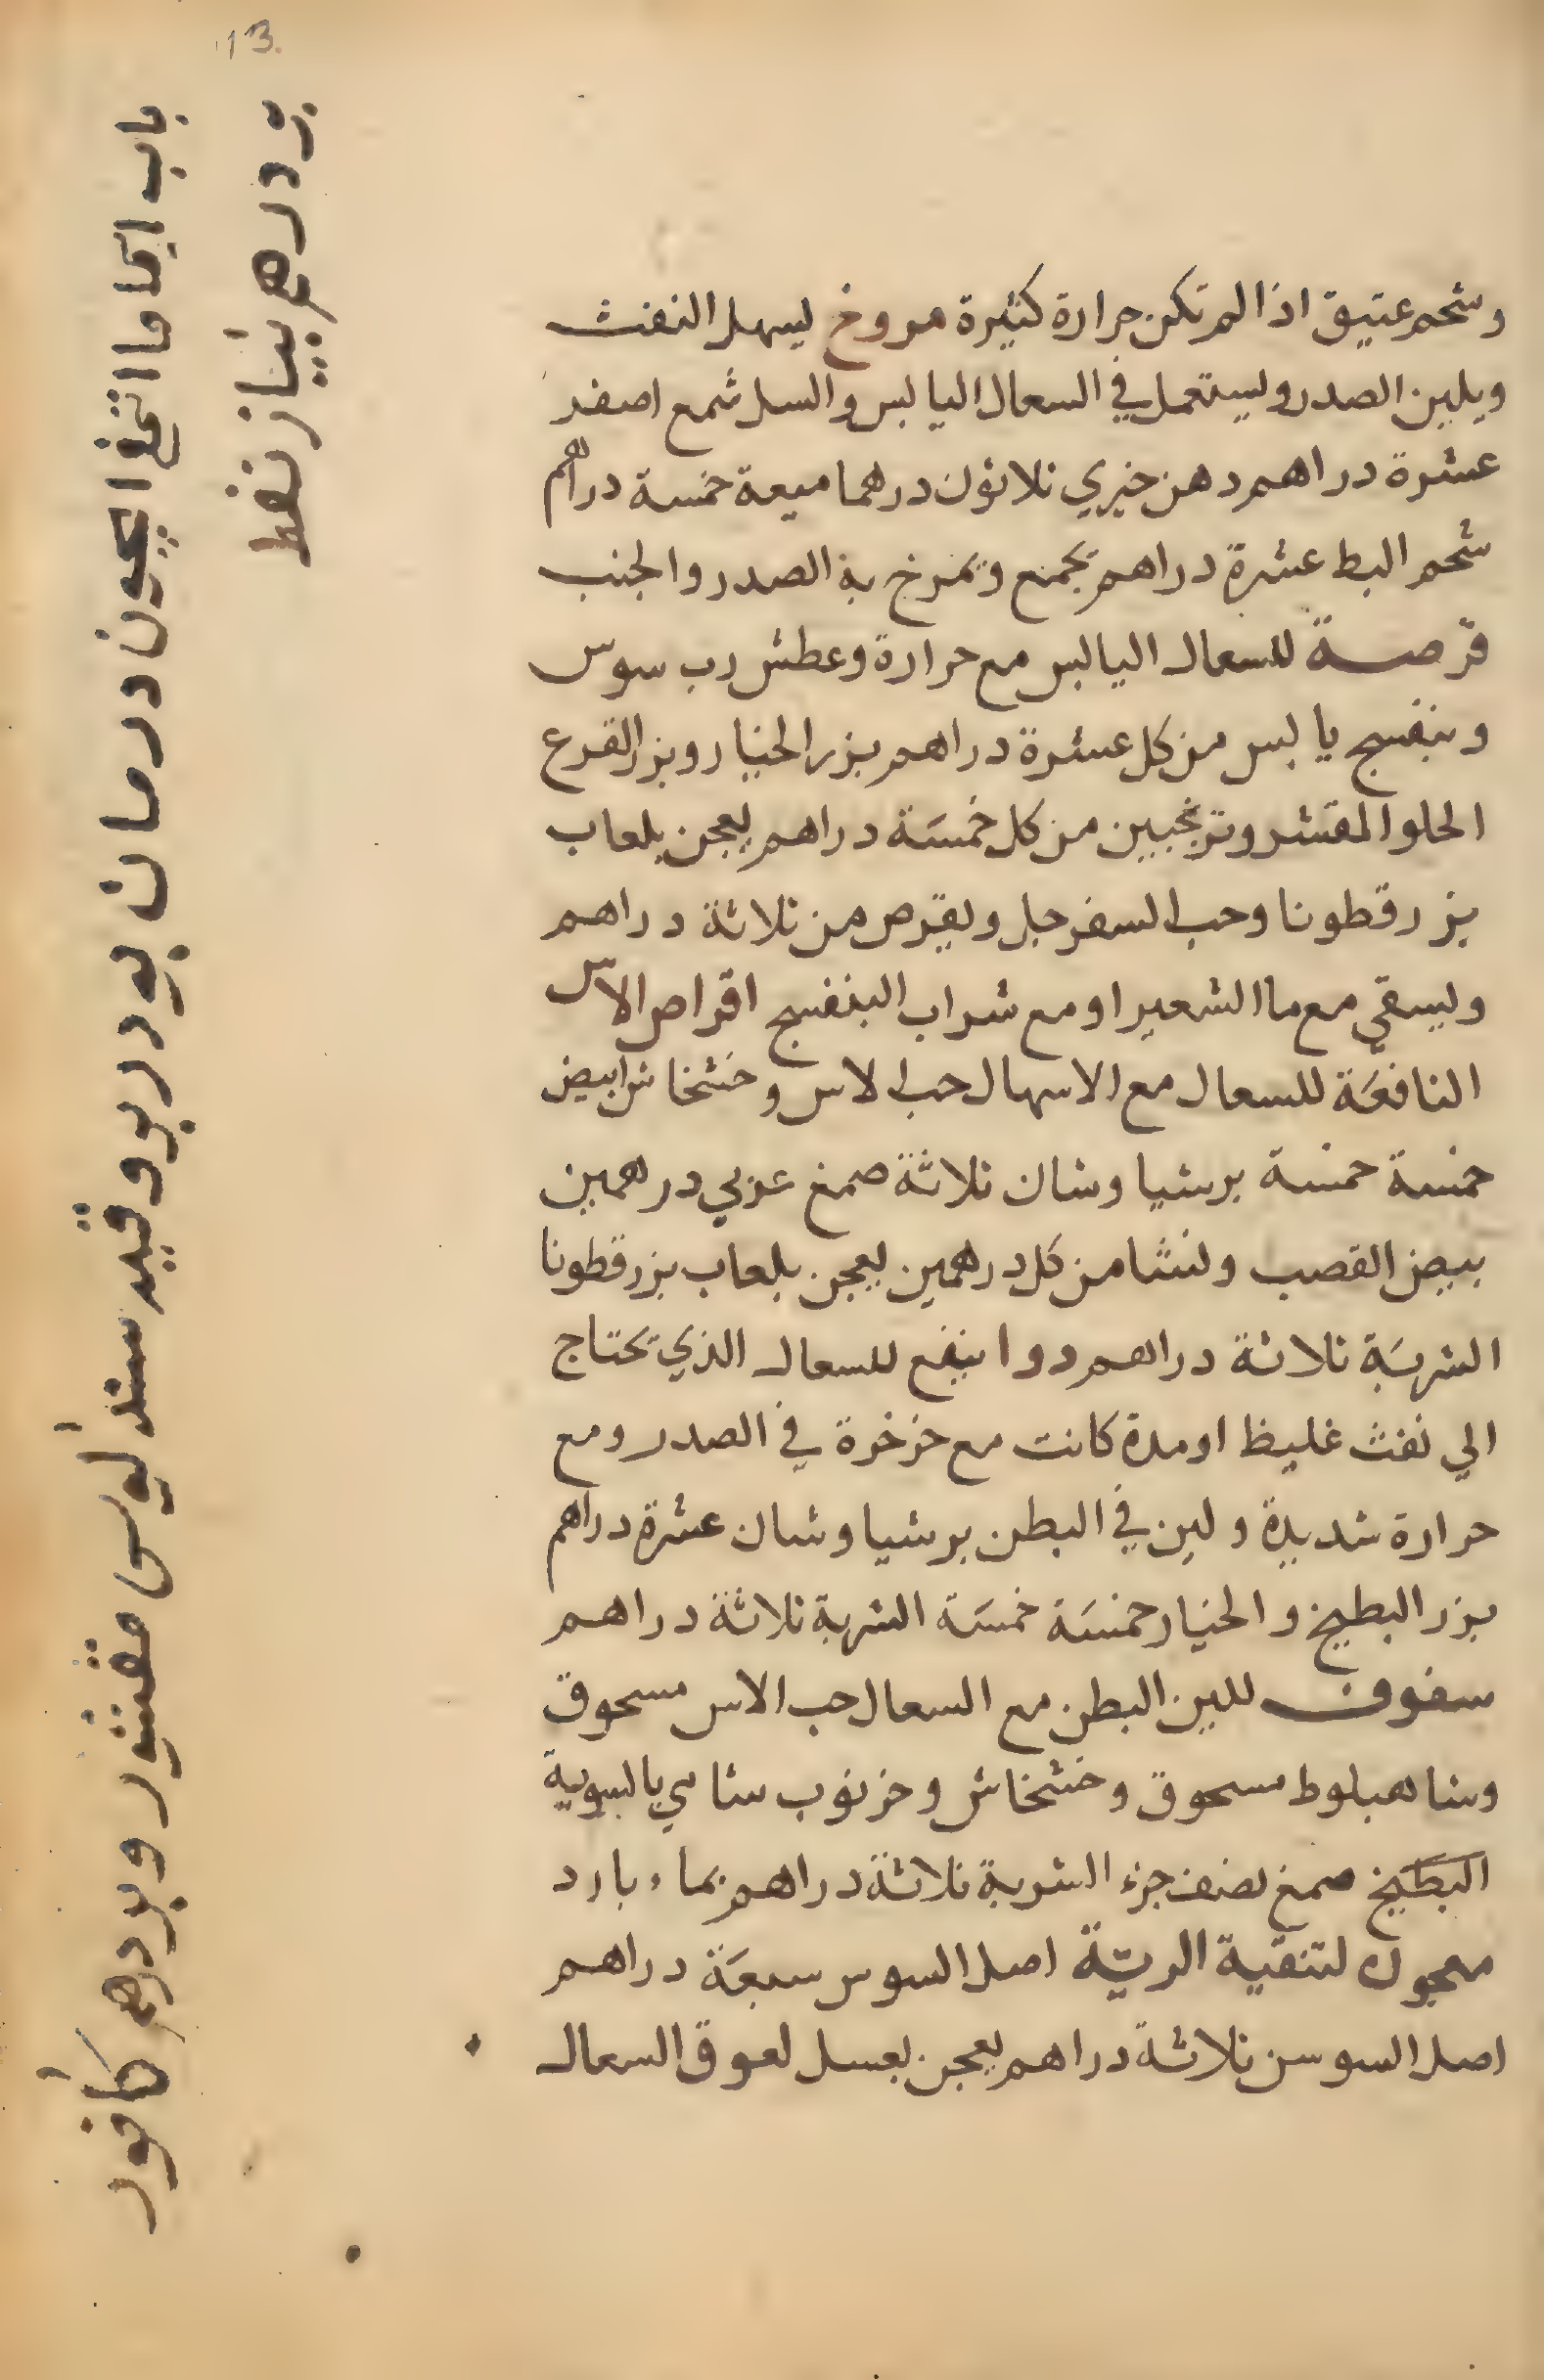 13.
وشحم عتيق اذا لم تكن حرارة كثيرة مروخ ليسهل النفث
ويلين الصدر ويستعمل في السعال اليابس والسل شمع اصفر
عشرة دراهم دهن خيري ثلاثون درهما ميعة خمسة دراهم
شحم البط عشرة دراهم تجمع وتمرخ به الصدر والجنب
قرصة للسعال اليابس مع حرارة وعطش رب سوس
وبنفسج يابس من كل عشرة دراهم بزر الخيار وبزر القرع
الحلو المقشر وترنجبين من كل خمسة دراهم يعجن بلعاب
بزرقطونا وحب السفرجل ويقرص من ثلاثة دراهم
ويسقي مع ما الشعير او مع شراب البنفسج اقراص الاس
النافعة للسعال مع الاسهال حب الاس وخشخاش ابيض
خمسة خمسة برشياوشان ثلاثة صمغ عربي درهمين
بيض القصب ونشا من كل درهمين يعجن بلعاب بزرقطونا
الشربة ثلاثة دراهم دوا ينفع للسعال الذي تحتاج
الي نفث غليظ او مدة كانت مع خرخرة في الصدر ومع
حرارة شديدة ولين في البطن برشياوشان عشرة دراهم
بزر البطيخ والخيار خمسة خمسة الشربة ثلاثة دراهم
سفوف للين البطن مع السعال حب الاس مسحوق
وشاهبلوط مسحوق وخشخاش وخرنوب شامي بالسوية
البطيخ صمغ نصف جزء الشربة ثلاثة دراهم بماء بارد
معجون لتنقية الرية اصل السوس سبعة دراهم
اصل السوسن ثلاثة دراهم يعجن بعسل لعوق السعال
باب ايچون درمان بودر بو وقيه سندلوسى مقشور وبر درهم كافور
بر درهم بياز نفط